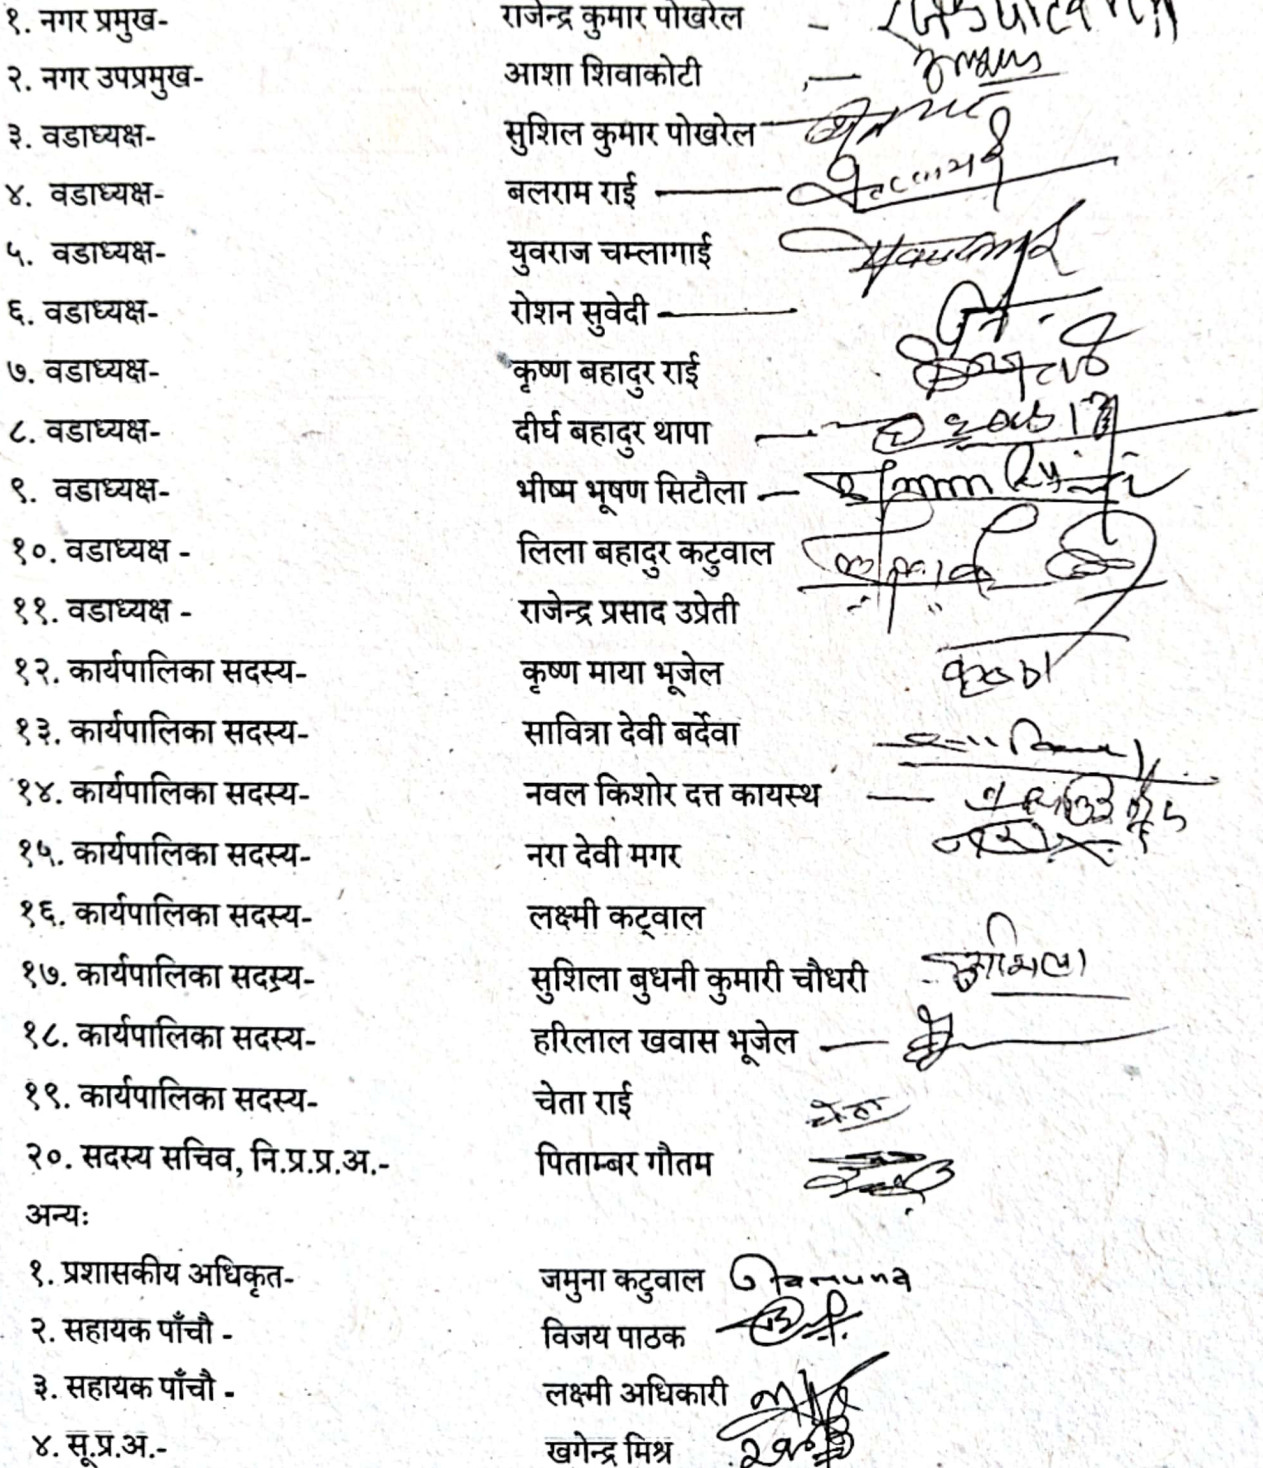 १. नगर प्रमुख- राजेन्द्र कुमार पोखरेल -
२. नगर उपप्रमुख- आशा शिवाकोटी
३. वडाध्यक्ष- सुशिल कुमार पोखरेल
४. वडाध्यक्ष- बलराम राई
५. वडाध्यक्ष- युवराज चम्लागाई
६. वडाध्यक्ष- रोशन सुवेदी
७. वडाध्यक्ष- कृष्ण बहादुर राई
८. वडाध्यक्ष- दीर्घ बहादुर थापा
९. वडाध्यक्ष- भीष्म भूषण सिटौला
१०. वडाध्यक्ष - लिला बहादुर कटुवाल
११. वडाध्यक्ष - राजेन्द्र प्रसाद उप्रेती
१२. कार्यपालिका सदस्य- कृष्ण माया भूजेल
१३. कार्यपालिका सदस्य- सावित्रा देवी बर्देवा
१४. कार्यपालिका सदस्य- नवल किशोर दत्त कायस्थ
१५. कार्यपालिका सदस्य- नरा देवी मगर
१६. कार्यपालिका सदस्य- लक्ष्मी कट्वाल
१७. कार्यपालिका सदस्य- सुशिला बुधनी कुमारी चौधरी सुशिला
१८. कार्यपालिका सदस्य- हरिलाल खवास भूजेल
१९. कार्यपालिका सदस्य- चेता राई
२०. सदस्य सचिव, नि.प्र.प्र.अ.- पिताम्बर गौतम
अन्यः
१. प्रशासकीय अधिकृत- जमुना कटुवाल Jamuna
२. सहायक पाँचौ - विजय पाठक
३. सहायक पाँचौ - लक्ष्मी अधिकारी
४. सू.प्र.अ.- खगेन्द्र मिश्र